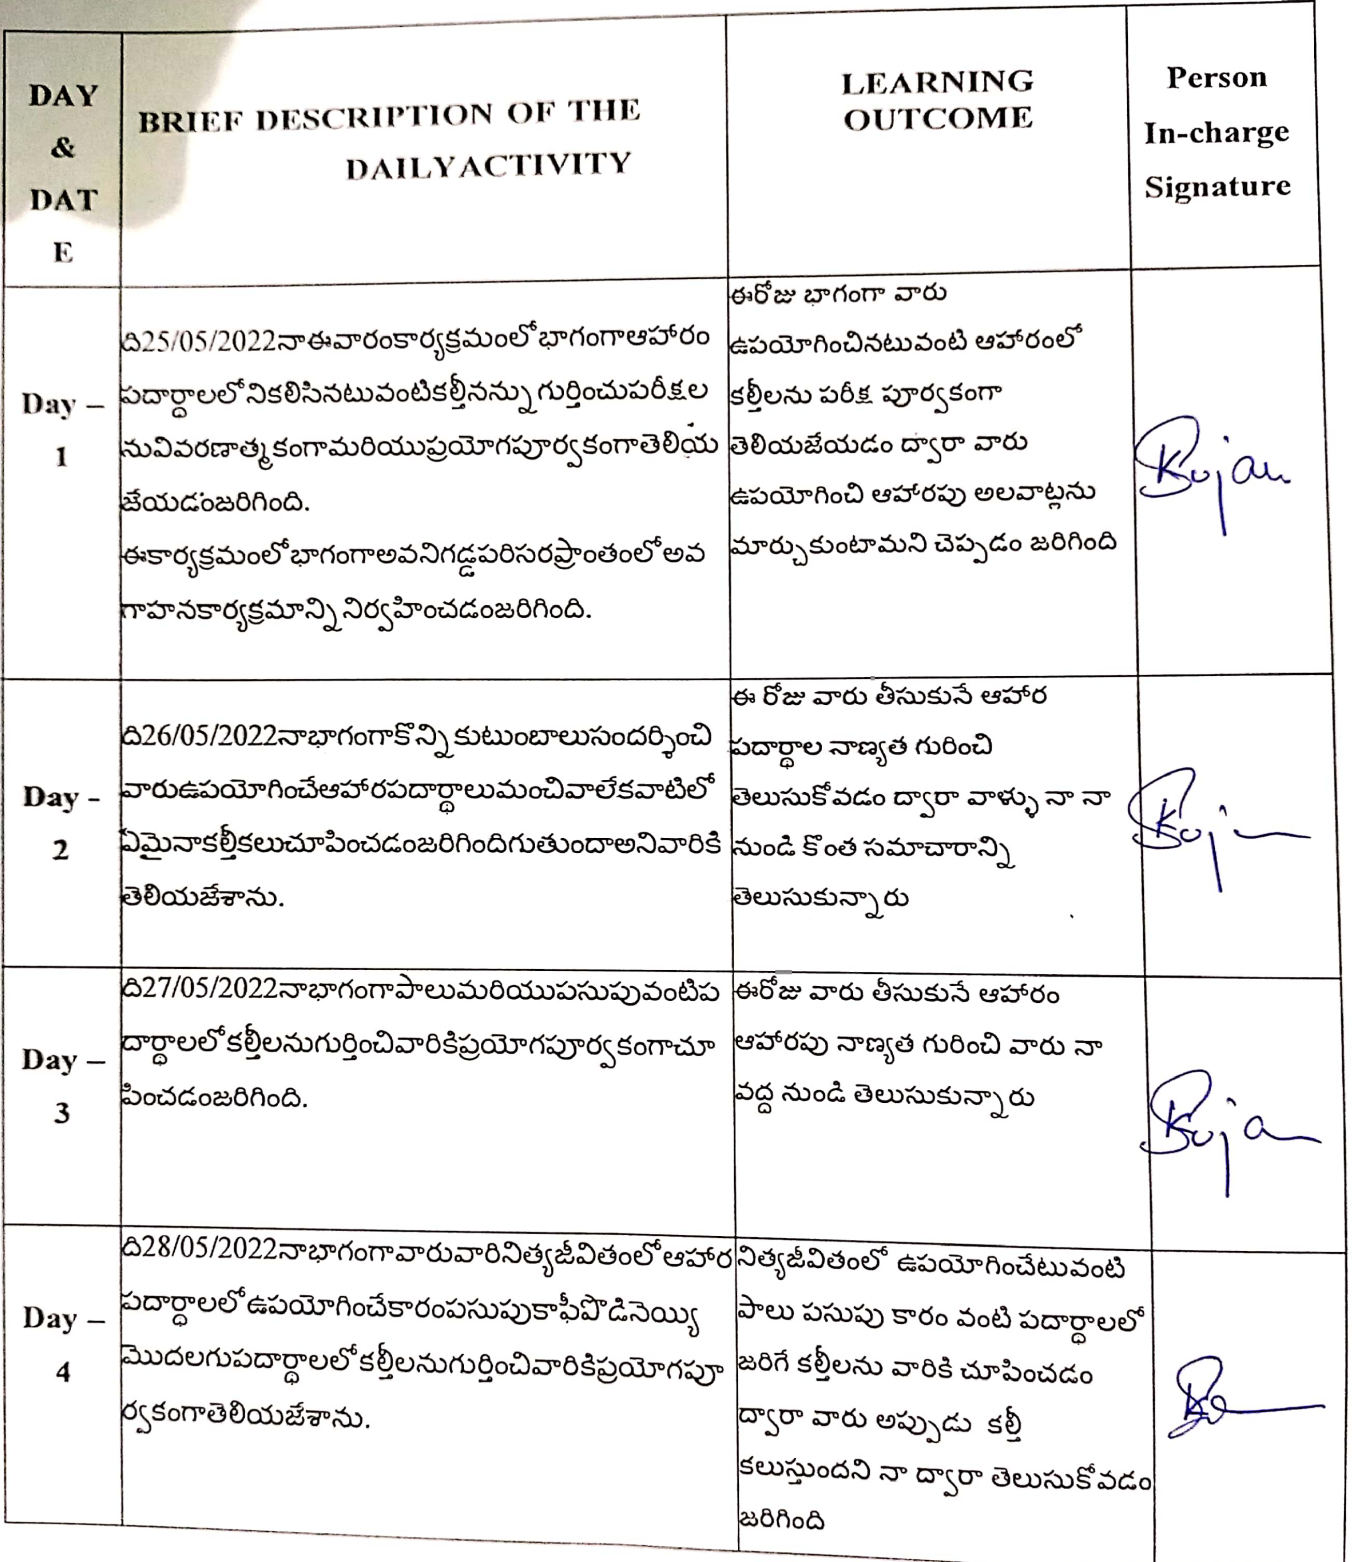 DAY
&
DAT
E
BRIEF DESCRIPTION OF THE
DAILYACTIVITY
LEARNING
OUTCOME
Person
In-charge
Signature
Day –
1
ది25/05/2022నాఈవారంకార్యక్రమంలోభాగంగాఆహారం
పదార్థాలలోనికలిసినటువంటికల్తీనన్నుగుర్తించుపరీక్షల
నువివరణాత్మకంగామరియుప్రయోగపూర్వకంగాతెలియ
జేయడంజరిగింది.
ఈకార్యక్రమంలోభాగంగాఅవనిగడ్డపరిసరప్రాంతంలోఅవ
గాహనకార్యక్రమాన్నినిర్వహించడంజరిగింది.
ఈరోజు భాగంగా వారు
ఉపయోగించినటువంటి ఆహారంలో
కల్తీలను పరీక్ష పూర్వకంగా
తెలియజేయడం ద్వారా వారు
ఉపయోగించి ఆహారపు అలవాట్లను
మార్చుకుంటామని చెప్పడం జరిగింది
Day -
2
ది26/05/2022నాభాగంగాకొన్నికుటుంబాలుసందర్శించి
వారుఉపయోగించేఆహారపదార్థాలుమంచివాలేకవాటిలో
ఏమైనాకల్తీకలుచూపించడంజరిగిందిగుతుందాఅనివారికి
తెలియజేశాను.
ఈ రోజు వారు తీసుకునే ఆహార
పదార్థాల నాణ్యత గురించి
తెలుసుకోవడం ద్వారా వాళ్ళు నా నా
నుండి కొంత సమాచారాన్ని
తెలుసుకున్నారు
Day –
3
ది27/05/2022నాభాగంగాపాలుమరియుపసుపువంటిప
దార్థాలలోకల్తీలనుగుర్తించివారికిప్రయోగపూర్వకంగాచూ
పించడంజరిగింది.
ఈరోజు వారు తీసుకునే ఆహారం
ఆహారపు నాణ్యత గురించి వారు నా
వద్ద నుండి తెలుసుకున్నారు
Day –
4
ది28/05/2022నాభాగంగావారువారినిత్యజీవితంలోఆహార
పదార్థాలలోఉపయోగించేకారంపసుపుకాఫీపొడినెయ్యి
మొదలగుపదార్థాలలోకల్తీలనుగుర్తించివారికిప్రయోగపూ
ర్వకంగాతెలియజేశాను.
నిత్యజీవితంలో ఉపయోగించేటువంటి
పాలు పసుపు కారం వంటి పదార్థాలలో
జరిగే కల్తీలను వారికి చూపించడం
ద్వారా వారు అప్పుడు కల్తీ
కలుస్తుందని నా ద్వారా తెలుసుకోవడం
జరిగింది